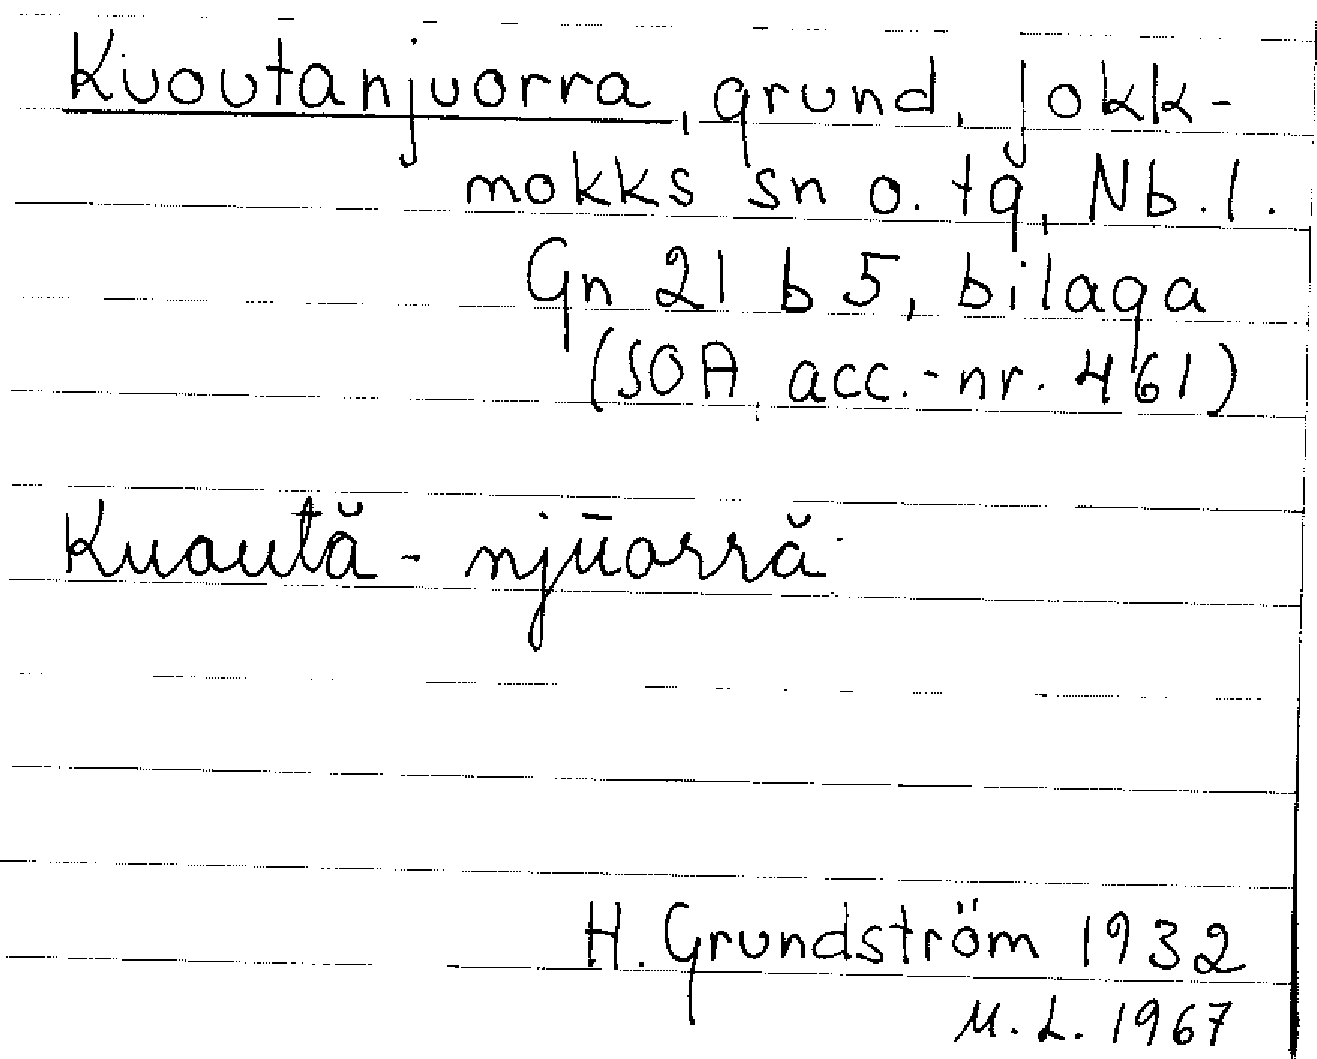 Kuoutanjuorra, grund, Jokk-
mokks sn o. tg, Nb. l.
Gn 21 b 5, bilaga
(SOA, acc.-nr. 461)
Kuoută - njūorră
H. Grundström 1932
M. L. 1967